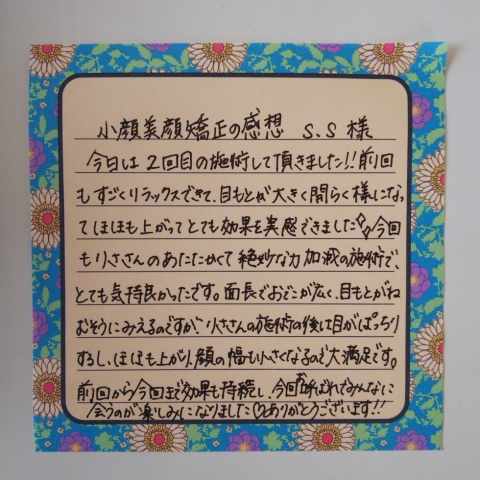 小顔美顔矯正の感想 S.S 様
今日は2回目の施術して頂きました!!前回
もすごくリラックスできて、目もとが大きく開らく様になっ
てほほも上がってとても効果を実感できました 今回
も小ささんのあたたかくて絶妙な力加減の施術で、
とても気持良かったです。面長でおでこが広く、目もとがね
むそうにみえるのですが、小ささんの施術の後して目がぱっちり
するし、ほほも上がり、顔の幅も小さくなるので大満足です。
前回から今回まで効果も持続し、今回お呼ばれでみんなに
会うのが楽しみになりました♡ありがとうございます!!